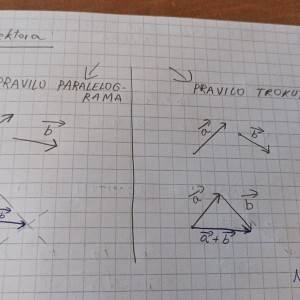 PRAVILO PARALELOG-
RAMA
b
b
PRAVILO TROKU
a
b
a
b
a + b